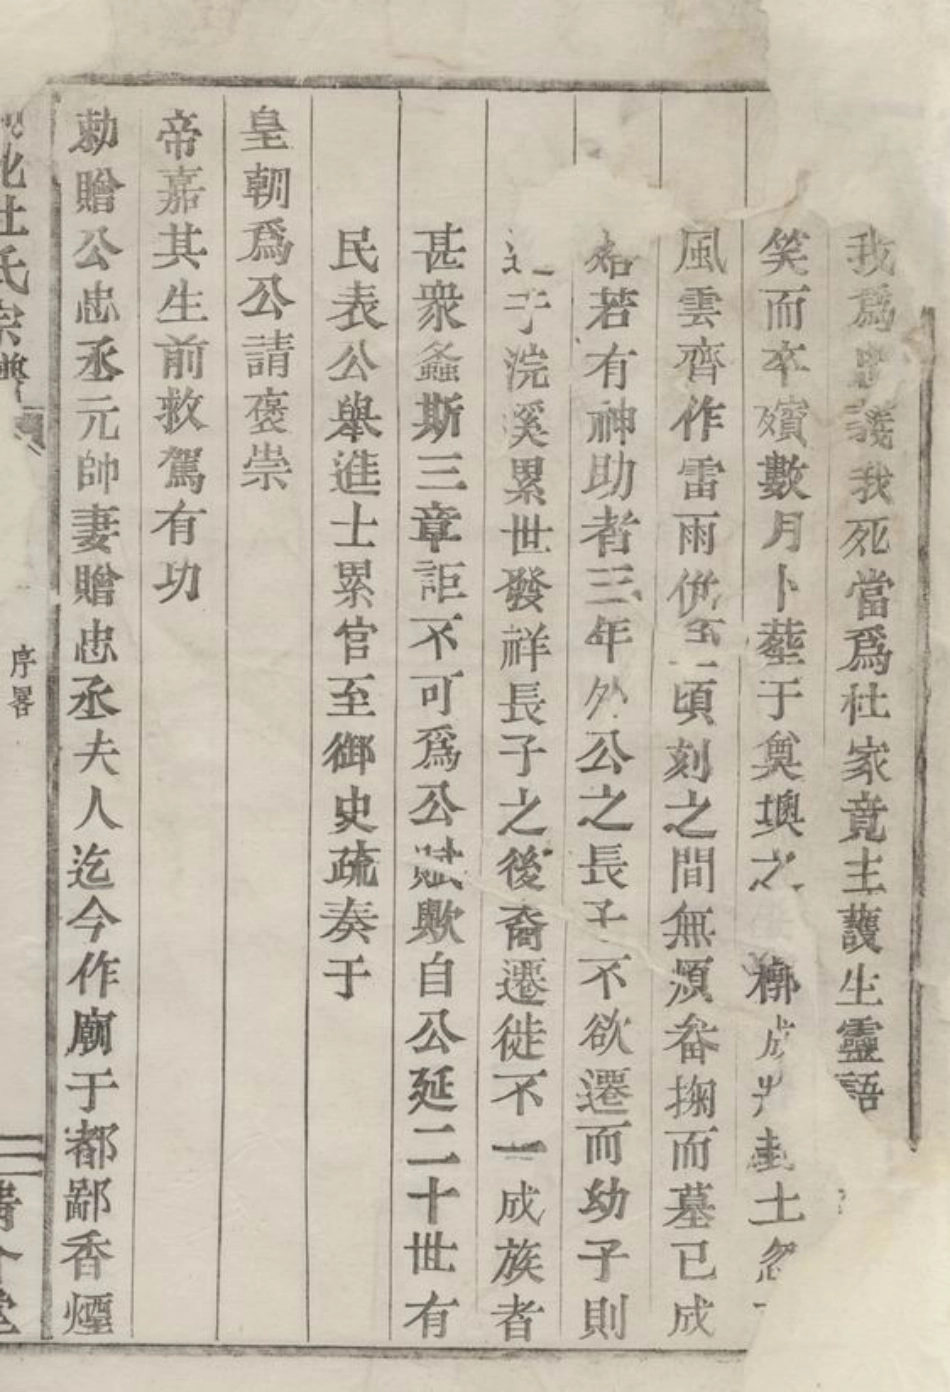 我爲忠義我死當爲杜家竟主護生靈語
笑而卒殯數月卜塟于奠墺之 槨成 土忽
風雲齊作雷雨併至頃刻之間無須畚掬而墓已成
若有神助者三年外公之長子不欲遷而幼子則
于浣溪累世發祥長子之後裔遷徙不一成族者
甚衆螽斯三章詎不可爲公賦歟自公延二十世有
民表公舉進士累官至御史疏奏于
皇朝爲公請褒崇
帝嘉其生前救駕有功
勅贈公忠丞元帥妻贈忠丞夫人迄今作廟于都鄙香煙
化杜氏宗譜
序畧
二